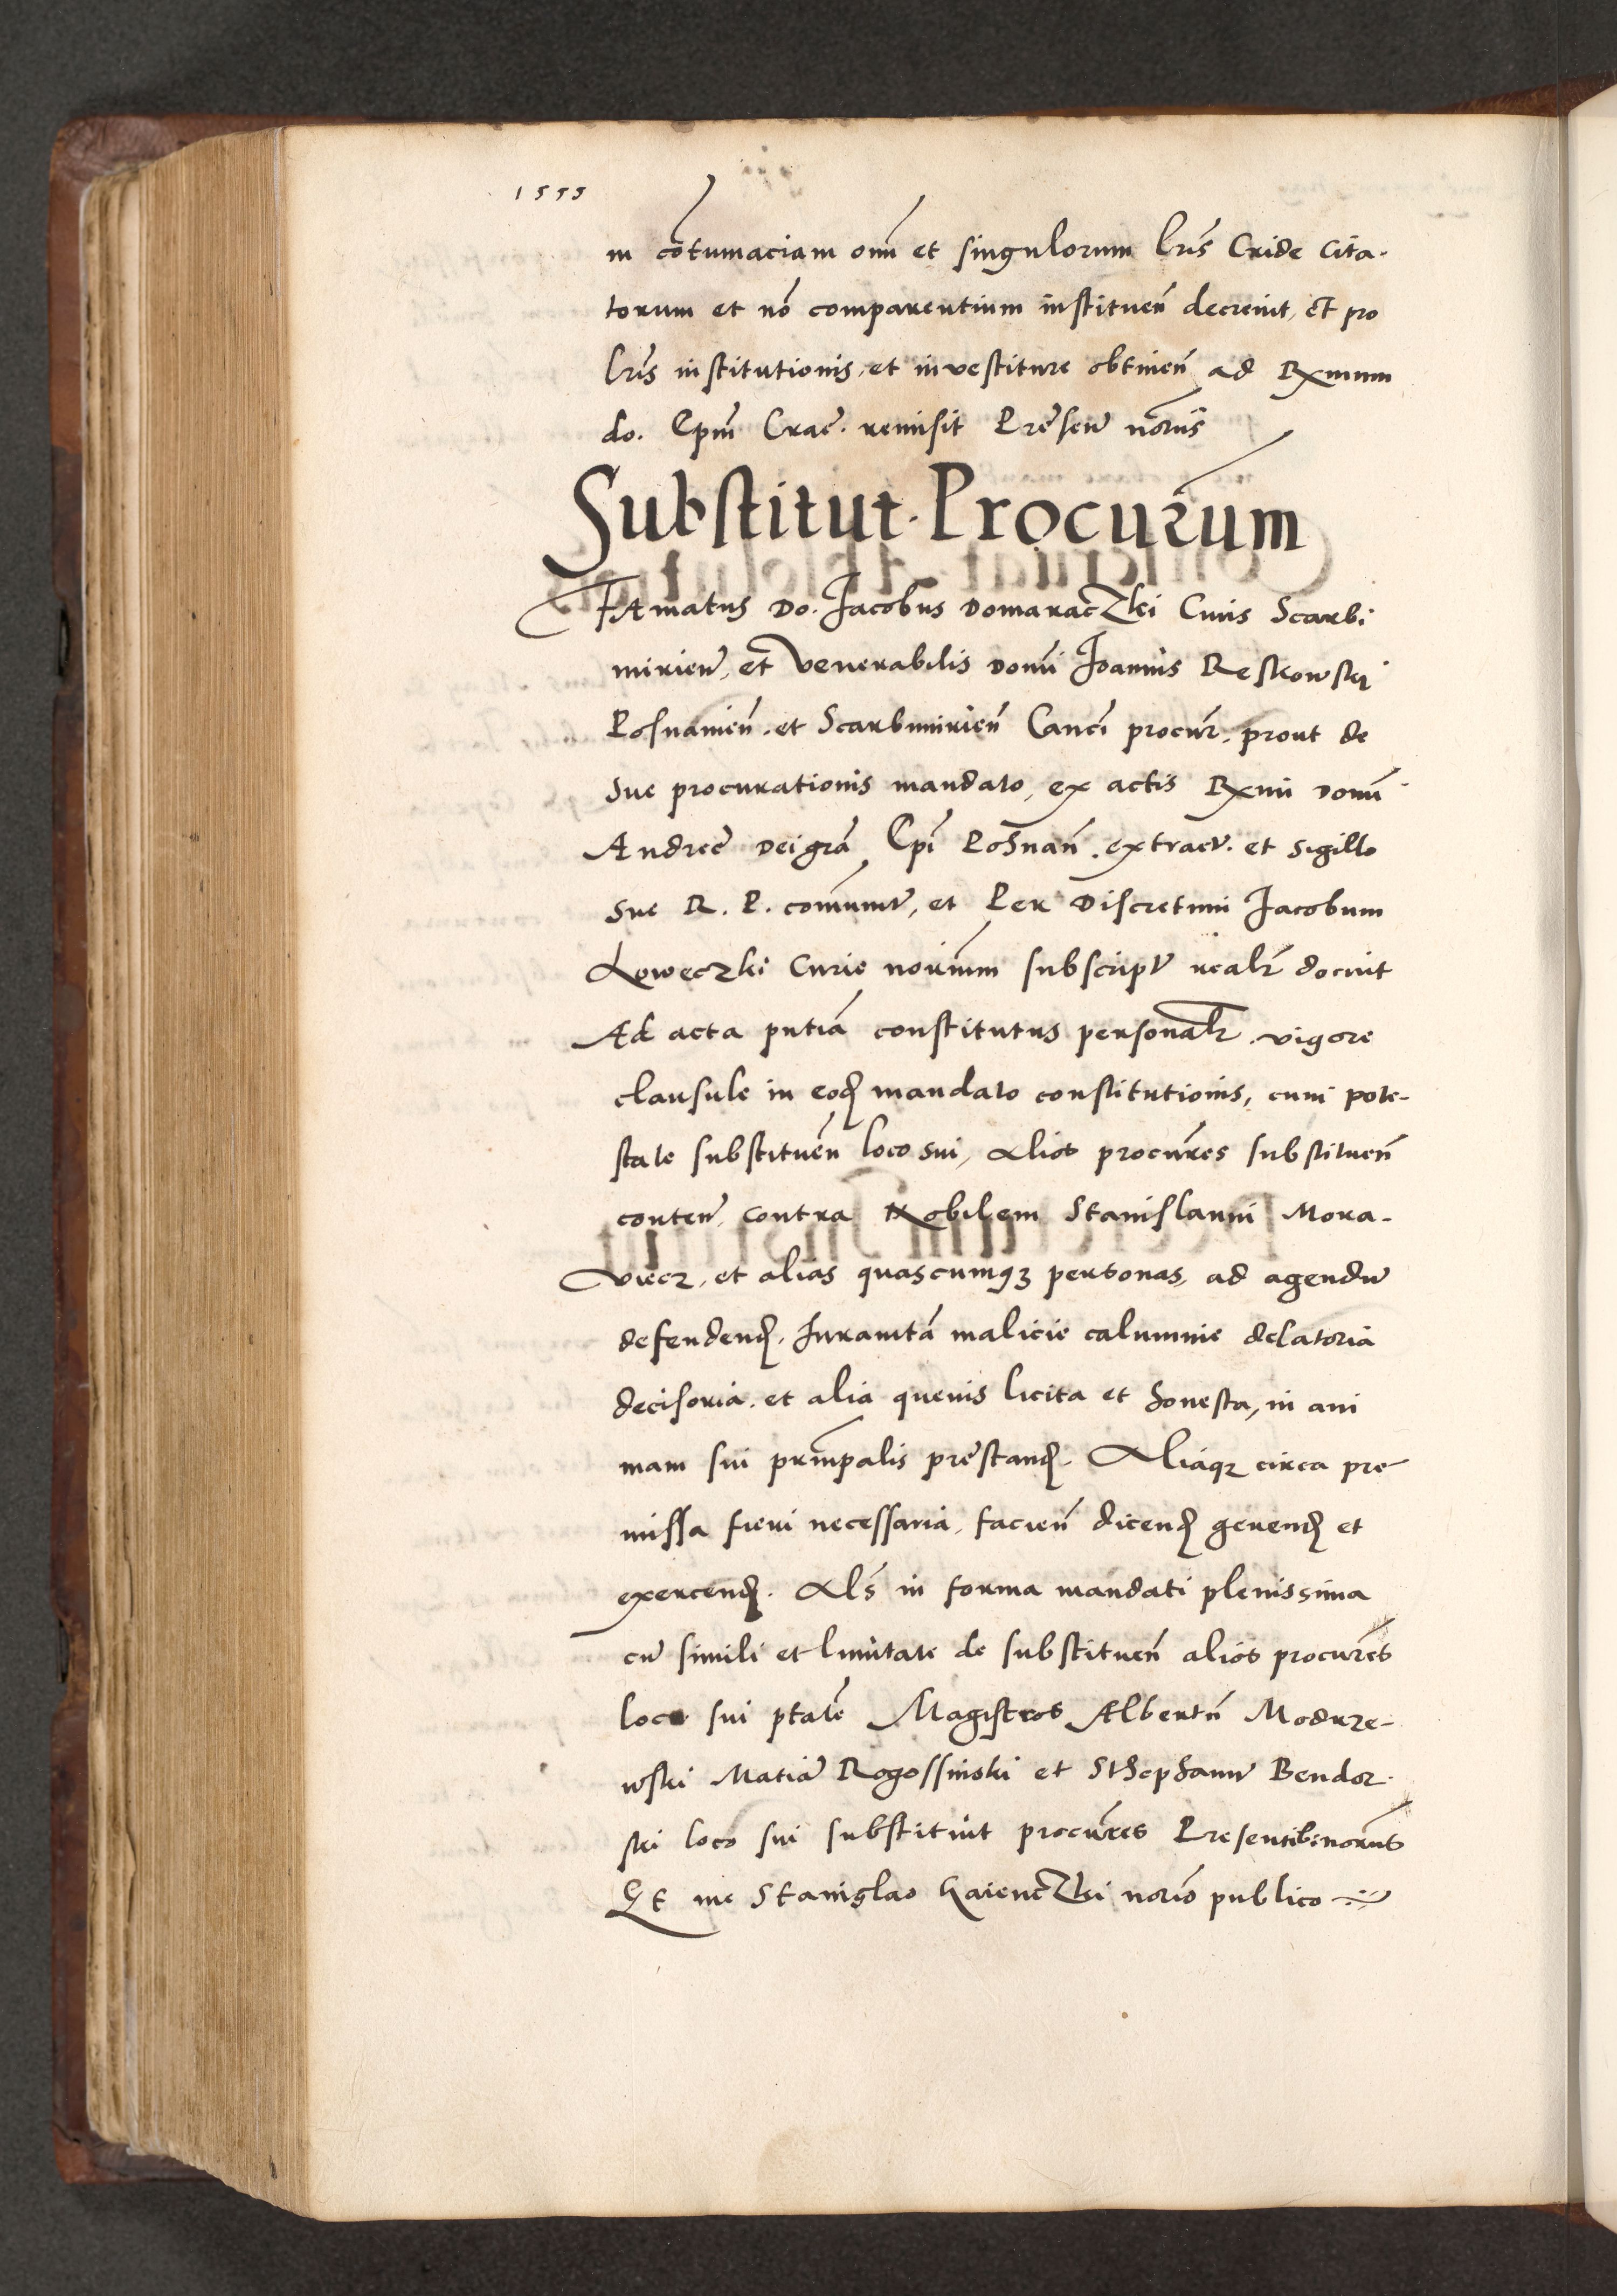 1555
in cōtumaciam om̄ et singulorum lr̄is Cride cita-
torum et nō comparentium instituen̄ decrevit, Et pro
lr̄is institutionis, et investiture obtinen̄ ad Rx̄mum
do. Ep̄m Crac̄. remisit Pr̄esen̄ nōriis
Substitut. Procur̄um
FAmatus Do. Jacobus DomaracZki Civis Scarbi
mirien̄, et Venerabilis Domī Joannis Reskowski
Posnanien̄. et Scarbimirien̄ Can̄ci procur̄. prout de
sue procurationis mandato, ex actis Rx̄mi Domī
Andree Dei gr̄a Ep̄i Posnan̄. extract̄. et sigillo
sue R. P. com̄unit̄, et Per Discretum Jacobum
Loweczki Curie nōrium subscript̄ realr̄ docuit
Ad acta pn̄tiā constitutus personalr̄. vigore
clausule in eod̄ mandato constitutionis, cum pote-
state substituen̄ loco sui, Alios procur̄es substituen̄
conten̄. contra Nobilem Stanislaum Mora-
viecz, et alias quascumq3 personas, ad agendū
defendend̄. Juramtā malicie calumnie delatoria
decisoria. et alia quevis licita et honesta, in ani
mam sui prin̄palis pr̄estand̄. Aliaq3 circa pre-
missa fieri necessaria, facien̄ dicend̄ gerend̄ et
exercend̄. Als̄ in forma mandati plenissima
cū simili et limitate de substituen̄ alios procur̄es
loco sui ptatē Magistros Albertū Modrze-
wski Matiā Rogossinski et Sthephanū Bendor-
ski loco sui substituit procur̄es Presentib9 noriis
Et me Stanislao KaiencZki norīo publico